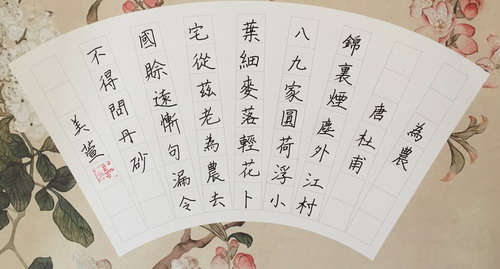 為農
唐杜甫
錦裏煙塵外江村
八九家圓荷浮小
葉細麥落輕花卜
宅從茲老為農去
國賒遠慚句漏令
不得問丹砂
美萱